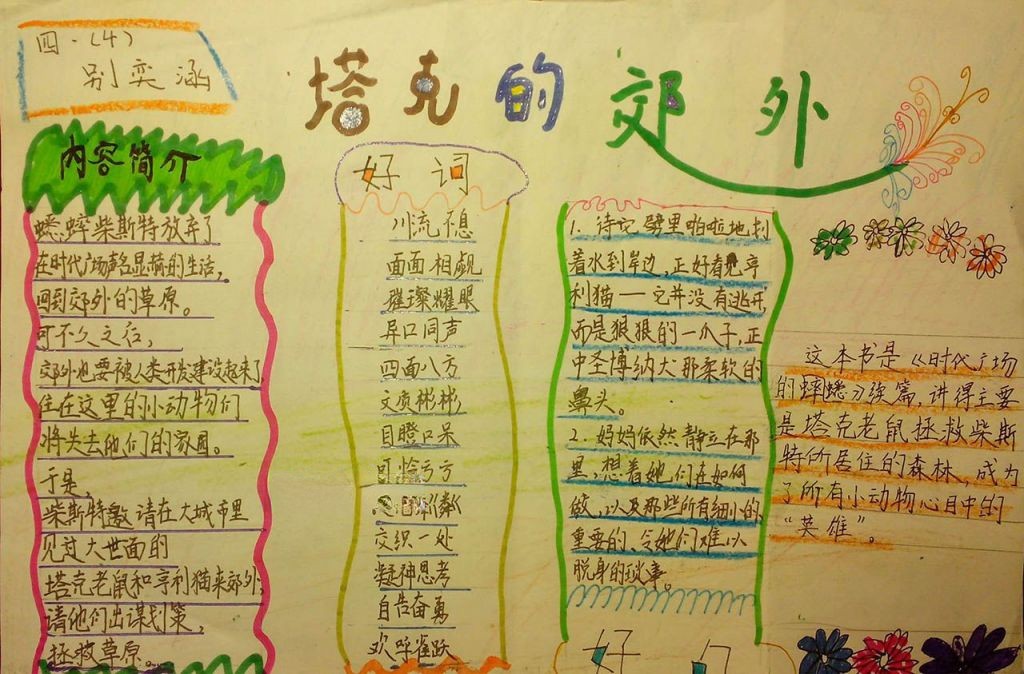 四·(4)
别奕涵
塔克的郊外
内容简介
蟋蟀柴斯特放弃了
在时代广场声名显赫的生活,
回到郊外的草原。
可不久之后,
郊外也要被人类开发建设起来了
住在这里的小动物们
将失去他们的家园。
于是,
柴斯特邀请在大城市里
见过大世面的
塔克老鼠和亨利猫来郊外,
请他们出谋划策,
拯救草原。
好词
川流不息
面面相觑
璀璨耀眼
异口同声
四面八方
文质彬彬,
目瞪口呆
可怜兮兮
交织一处
凝神思考
自告奋勇
欢呼雀跃
1. 待它劈里啪啦地划
着水到岸边,正好看见亨
利猫——它并没有逃开,
而是狠狠的一爪子,正
中圣博纳犬那柔软的
鼻头。
2. 妈妈依然静立在那
里,想着她们在如何
做,以及那些所有细小的,
重要的、令她们难以
脱身的琐事。
好句
这本书是《时代广场
的蟀蟋》续篇,讲得主要
是塔克老鼠拯救柴斯
特所居住的森林,成为
了所有小动物心目中的
“英雄”。